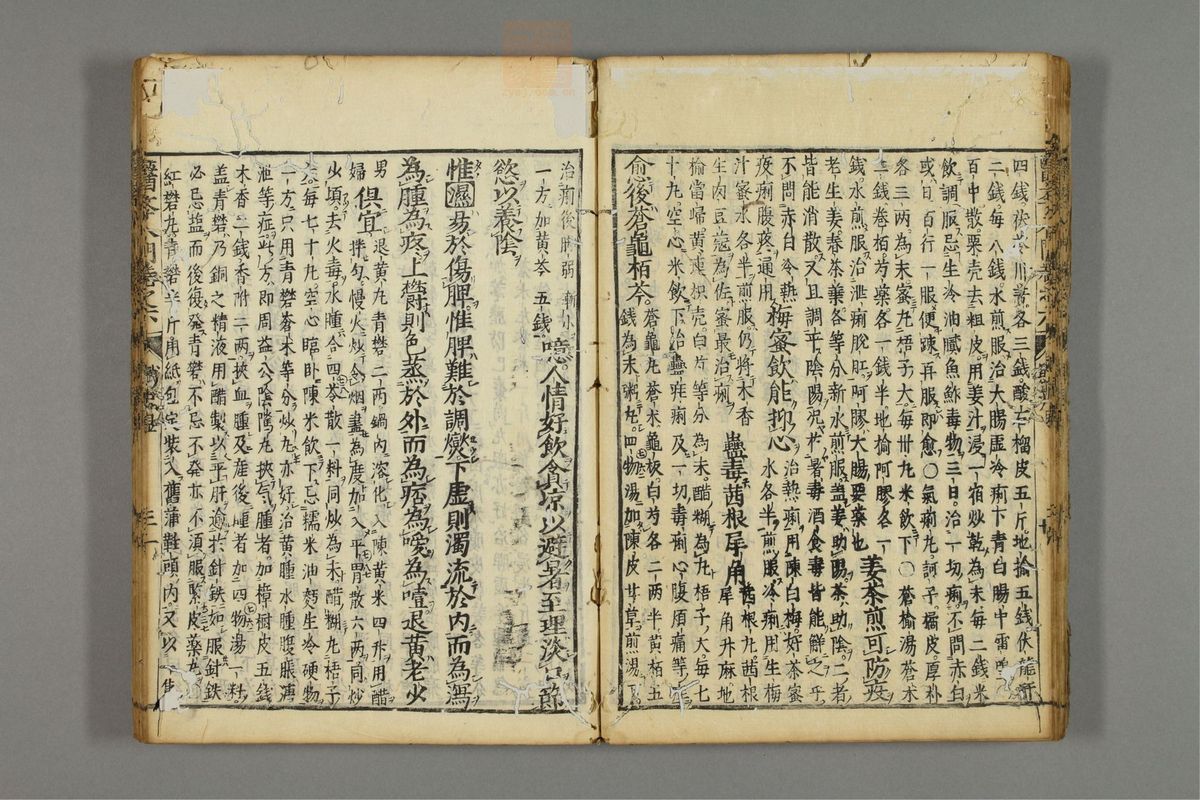 四錢茯苓川芎各三錢酸石榴皮五斤地揄五錢伏龍肝
二錢每八錢水煎服治大腸虛冷痢下青白腸中雷鳴
百中散粟壳去粗皮用姜汁浸一宿炒乾為末每二錢米
飲調服忌生冷油膩魚鮓毒物三日治一切痢不問赤白
或日百行一服便踈再服即愈〇氣痢丸訶子橘皮厚朴
各三兩為末蜜丸梧子大每卅丸米飲下〇蒼榆湯蒼朮
二錢卷栢芍藥各一錢半地榆阿膠各一
錢水煎服治泄痢脫肛阿膠大腸要藥也 姜茶煎可防疫
老生姜春茶葉各等分新水煎服盖姜助陽茶助陰二者
皆能消散又且調平陰陽况於暑毒酒食毒皆能觧之乎
不問赤白冷熱
疫痢腹疼通用 梅蜜飲能抑心 治熱痢用陳白梅好茶蜜
水各半煎服冷痢用生梅
汁蜜水各半煎服仍將木香
生肉豆蔻為佐蜜最治痢 蠱毒茜根犀角 茜根丸茜根
犀角升麻地
榆當歸黃連枳壳白芍等分為末醋糊為丸梧子大每七
十丸空心米飲下治蠱疰痢及一切毒痢心腹煩痛等
愈後蒼龜栢芩 蒼龜丸蒼朮龜板白芍各二兩半黃栢五
錢為末粥丸四物湯加陳皮甘草煎湯
治痢後脚弱
一方加黃芩五錢 噫人情好飲食凉以避暑至理淡口節
慾以養陰
惟濕易於傷脾惟脾難於調爕下虛則濁流於內而為瀉
為腫為疼上欝則色蒸於外而為痞為噯為噎退黃老少
男
婦 俱宜 退黃丸青礬二兩鍋內溶化入陳黃米四升用醋
拌匀慢火炒令烟盡為度加入平胃散六兩同炒
火頃去火毒水腫合四苓散一料同炒為末醋糊丸梧子
大每七十丸空心臨卧陳米飲下忌糯米油麪生冷硬物
一方只用青礬蒼朮等分炒丸亦好治黃腫水腫腹脹溏
泄等症此方即周益公陰隲丸挾气腫者加樟樹皮五錢
木香二錢香附二兩挾血腫及產後腫者加四物湯一料
盖青礬乃銅之精液用醋製以平肝逾於針鉄如服針鉄
必忌塩而後復發青礬不忌不發亦不須服緊皮藥丸
紅礬丸青礬半斤用紙包定裝入舊蒲鞋頭內又以